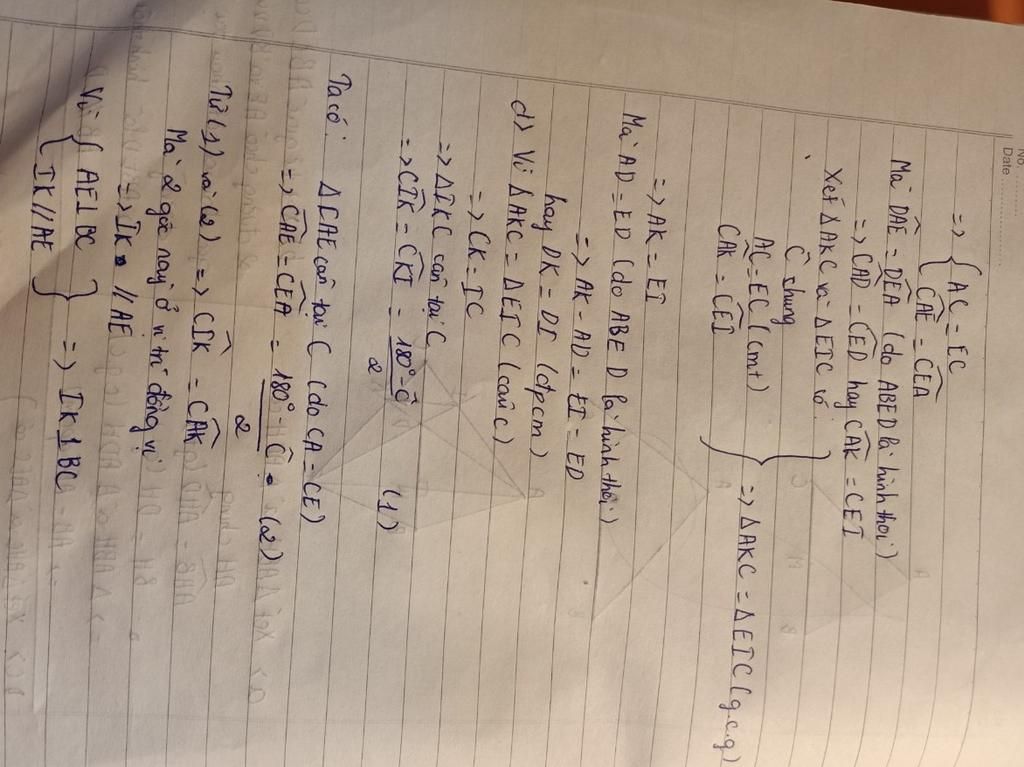 No
Date
=> { AC = EC
CAE = CEA
Mà DAE = DEA (do ABED là hình thoi)
=> CAD = CED hay CAK = CEI
Xét ΔAKC và ΔEIC có
C chung
AC = EC (cmt)
CAK = CEI
} => ΔAKC = ΔEIC (g.c.g)
=> AK = EI
Mà AD = ED (do ABED là hình thoi)
=> AK - AD = EI - ED
hay DK = DI (đpcm)
d) Vì ΔAKC = ΔEIC (câu c)
=> CK = IC
=> ΔIKC cân tại C
=> CIK = CKI = (180° - C)/2 (1)
Ta có: ΔCAE cân tại C (do CA = CE)
=> CAE = CEA = (180° - C)/2 (2)
Từ (1) và (2) => CIK = CAK
Mà 2 góc này ở vị trí đồng vị
=> IK // AE
Vì { AE ⊥ BC
IK // AE } => IK ⊥ BC